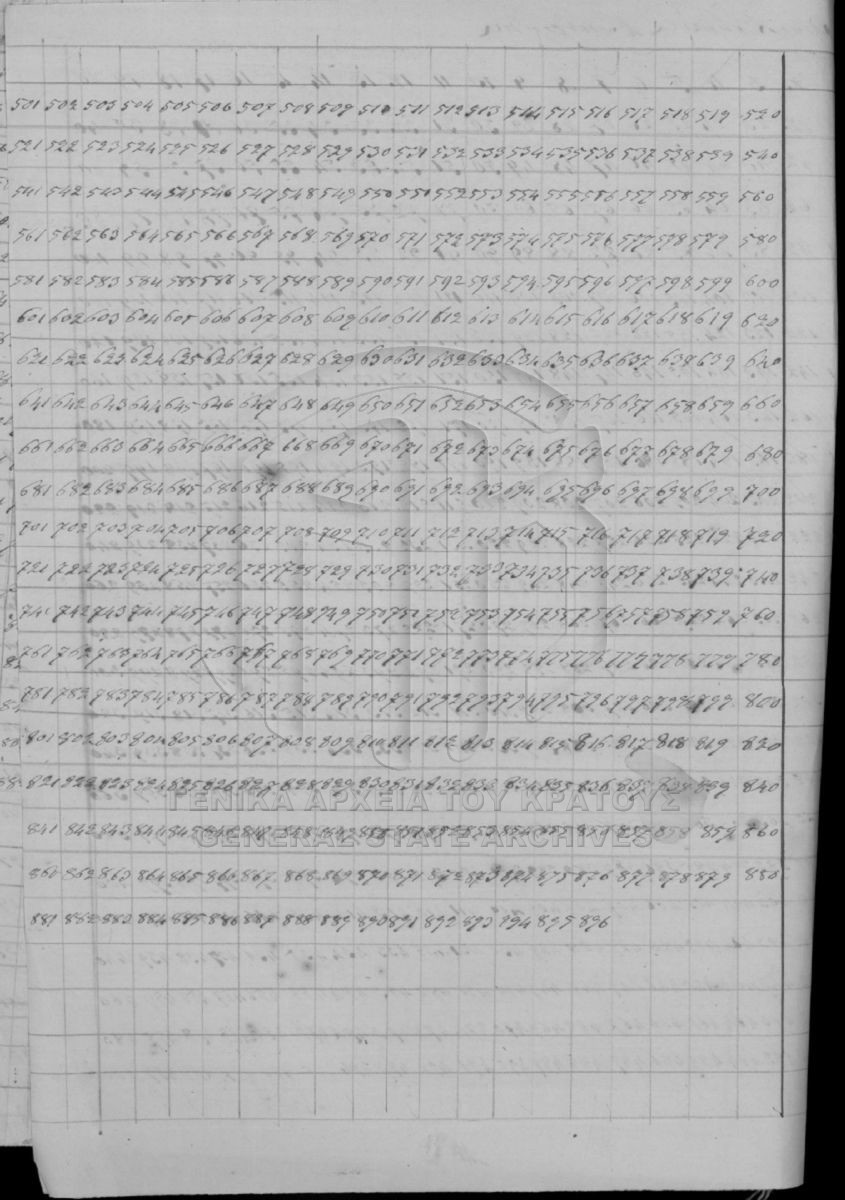 501 502 503 504 505 506 507 508 509 510 511 512 513 514 515 516 517 518 519 520
521 522 523 524 525 526 527 528 529 530 531 532 533 534 535 536 537 538 539 540
541 542 543 544 545 546 547 548 549 550 551 552 553 554 555 556 557 558 559 560
561 562 563 564 565 566 567 568 569 570 571 572 573 574 575 576 577 578 579 580
581 582 583 584 585 586 587 588 589 590 591 592 593 594 595 596 597 598 599 600
601 602 603 604 605 606 607 608 609 610 611 612 613 614 615 616 617 618 619 620
621 622 623 624 625 626 627 628 629 630 631 632 633 634 635 636 637 638 639 640
641 642 643 644 645 646 647 648 649 650 651 652 653 654 655 656 657 658 659 660
661 662 663 664 665 666 667 668 669 670 671 672 673 674 675 676 677 678 679 680
681 682 683 684 685 686 687 688 689 690 691 692 693 694 695 696 697 698 699 700
701 702 703 704 705 706 707 708 709 710 711 712 713 714 715 716 717 718 719 720
721 722 723 724 725 726 727 728 729 730 731 732 733 734 735 736 737 738 739 740
741 742 743 744 745 746 747 748 749 750 751 752 753 754 755 756 757 758 759 760
761 762 763 764 765 766 767 768 769 770 771 772 773 774 775 776 777 778 779 780
781 782 783 784 785 786 787 788 789 790 791 792 793 794 795 796 797 798 799 800
801 802 803 804 805 806 807 808 809 810 811 812 813 814 815 816 817 818 819 820
821 822 823 824 825 826 827 828 829 830 831 832 833 834 835 836 837 838 839 840
ΓΕΝΙΚΑ ΑΡΧΕΙΑ ΤΟΥ ΚΡΑΤΟΥΣ
841 842 843 844 845 846 847 848 849 850 851 852 853 854 855 856 857 858 859 860
GENERAL STATE ARCHIVES
861 862 863 864 865 866 867 868 869 870 871 872 873 874 875 876 877 878 879 880
881 882 883 884 885 886 887 888 889 890 891 892 893 894 895 896